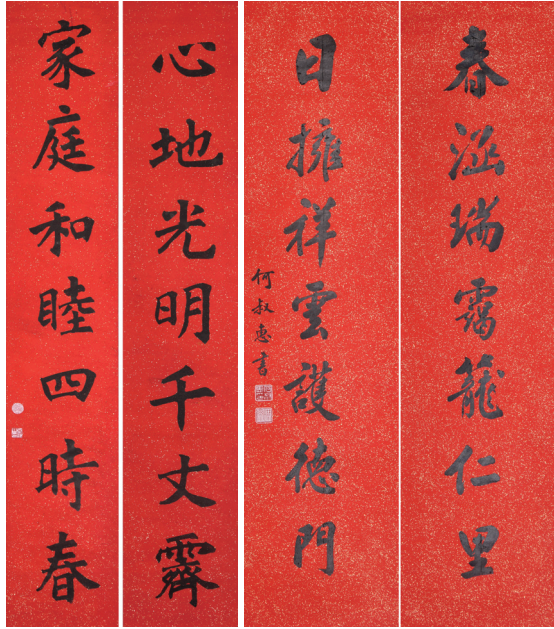 春涵瑞靄籠仁里
日擁祥雲護德門
何叔惠書
心地光明千丈霽
家庭和睦四時春